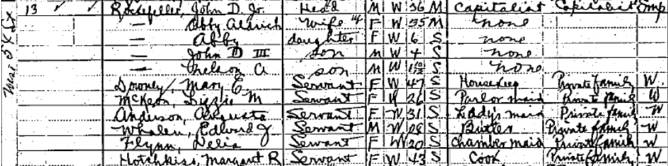 13 Rockefeller, John D. Jr. Head M W 36 M Capitalist Capitalist Emp
— Abby Aldrich Wife F W 35 M none
— Abby daughter F W 6 S none
— John D III son M W 4 S none
— Nelson A son M W S none
Downey, Mary E. Servant F W 47 S Housekeep Private family W.
McKeon, Lizzie M Servant F W 26 S Parlor maid Private family W
Anderson, Augusta Servant F W 31 S Ladys maid Private Family W
Whalen, Edward J. Servant M W 28 S Butler Private family W
Flynn, Delia Servant F W 20 S Chamber maid Private family W
Hotchkiss, Margaret R Servant F W 43 S Cook Private family W
West 54 St